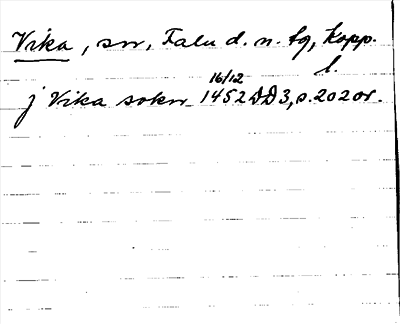 Vika, sn, Falu d. n. tg, Kopp.
l.
j Vika sokn 16/12 1452 DD3, s. 202 or.